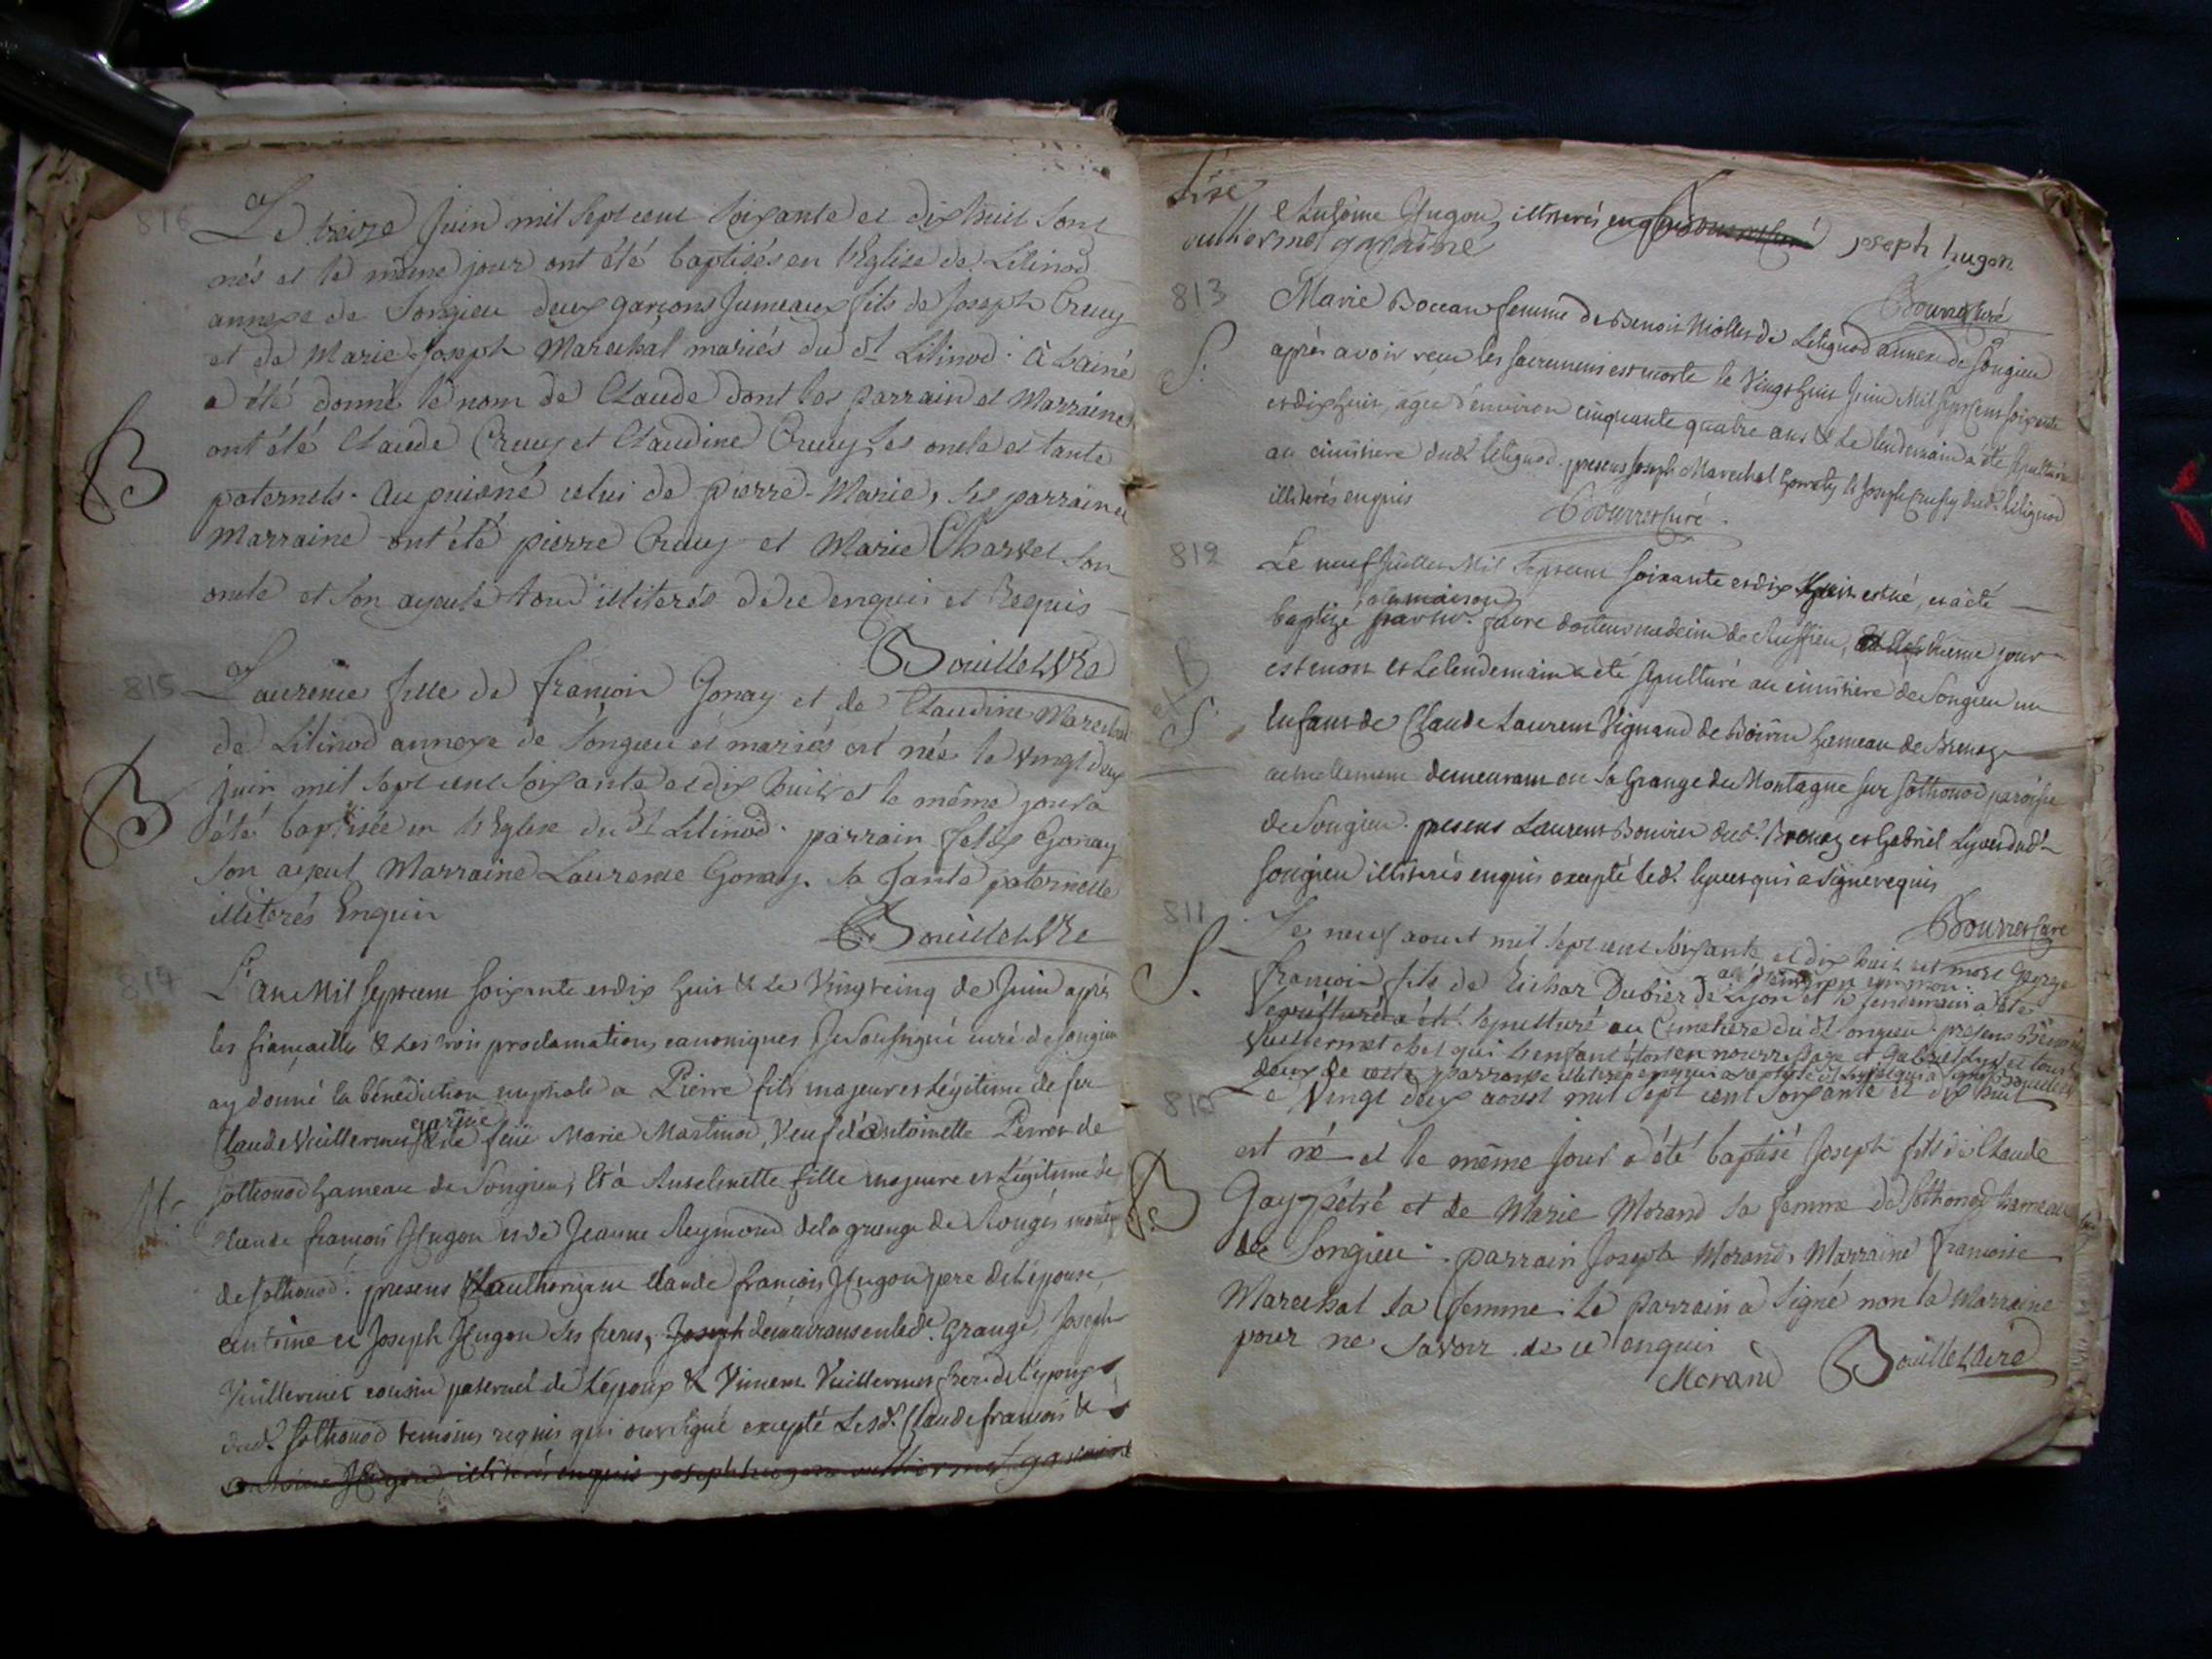 816
Le treize juin mil sept cent soixante et dix huit sont
nés et le même jour ont été baptisés en l'Eglise de Lilinod
annexe de Songieu deux garçons jumeaux fils de joseph Cruuy
et de Marie-joseph Marechal mariés du dt Lilinod. à l'ainé
a été donné le nom de Claude dont les parrain et Marraine
B
ont été Claude Cruuy et Claudine Cruuy ses oncle et tante
paternels. au puiené celui de pierre-Marie, ses parrain et
Marraine ont été pierre Cruuy et Marie Charvet son
oncle et son ayeule tous illiterés de ce enquis et Requis
Bouillet Vre
815
Laurence fille de françois Gonay et de Claudine Marechal
de Lilinod annexe de Songieu et mariés est née le vingt deux
juin mil sept cent soixante et dix huit et le même jour a
B
été baptisée en l'Eglise du dt Lilinod. parrain felix Gonay
son ayeul Marraine Laurence Gonay sa Tante paternelle
illiterés Enquis
Bouillet Vre
814
L'an Mil septcent soixante et dix huit & le Vingt cinq de Juin après
les fiançailles & les trois proclamations canoniques Je soussigné curé de songieu
ay donné la bénédiction nuptiale a Pierre fils majeur et Légitime de feu
garine
Claude Vuillermet & de feüe Marie Martinod, Veuf d'antoinette Perret de
M.
sothonod hameau de Songieu, Et à Anselmette fille majeure et Légitime de
Claude françois Hugon et de Jeanne Reymond de la grange de Rougés montagne
de sothonod. presens & authorizant Claude françois Hugon pere de L'épouse,
antoine et Joseph Hugon ses freres, Joseph demeurans en lade. Grange, Joseph
Vuillermet cousin paternel de L'epoux & Vincent Vuillermet frere de L'epoux
dud. sothonod temoins requis qui ont signé excepté Lesd. Claude françois &
antoine Hugon illiterés enquis joseph hugon vulliermet garine
& Antoine Hugon, illiterés enquis joseph hugon
vulliermet garine
Bourret Curé
813
Marie Boccau femme de Benoit Miollet de Lilignod annexe de Songieu
S.
après avoir recu les sacremens est morte le Vingt huit Juin Mil septcent soixante
et dix huit, agée d'environ cinquante quatre ans & Le lendemain a été sepulturée
au cimitiere dudt lilignod. presens Joseph Marechal & Joseph Cruisy dud. Lilignod
illiterés enquis
Bourret Curé.
812
Le neuf Juillet Mil septcent soixante et dix huit est né, et a été
a la maison
baptizé par mr. favre docteur medecin de Ruffieu, même jour
B
et
S.
est mort et Le lendemain a été sepulturé au cimitiere de Songieu un
Enfant de Claude Laurent Vignand de hameau de Brenaz
actuellement demeurant en la Grange du Montagne sur sothonod paroisse
de Songieu. presens Laurent Bouvier dud. Brenaz et Gabriel Lyvet dudt
songieu illiterés enquis excepté led. Lyvet qui a signé requis
Bourret Curé
811
Le neuf aoust mil sept cent soixante et dix huit est mort George
S.
françois fils de Richar Dubier de Lyon et le lendemain a été
agé d'environ un mois
sepulturé a été sepulturé au Cimetiere du dt Songieu. presens Benoit
Vuillermet chez qui L'enfant étoit en nourrissage et Gabriel Lyvet tous
deux de cette parroisse
810
Le Vingt deux aoust mil sept cent soixante et dix huit
est né et le même jour a été baptisé Joseph fils de Claude
B
Gay Pétré et de Marie Morand sa femme de Sothonod hameau
de Songieu. parrain Joseph Morand, Marraine françoise
Marechal sa femme. le parrain a signé non la Marraine
pour ne savoir de ce enquis
Morand Bouillet Vire